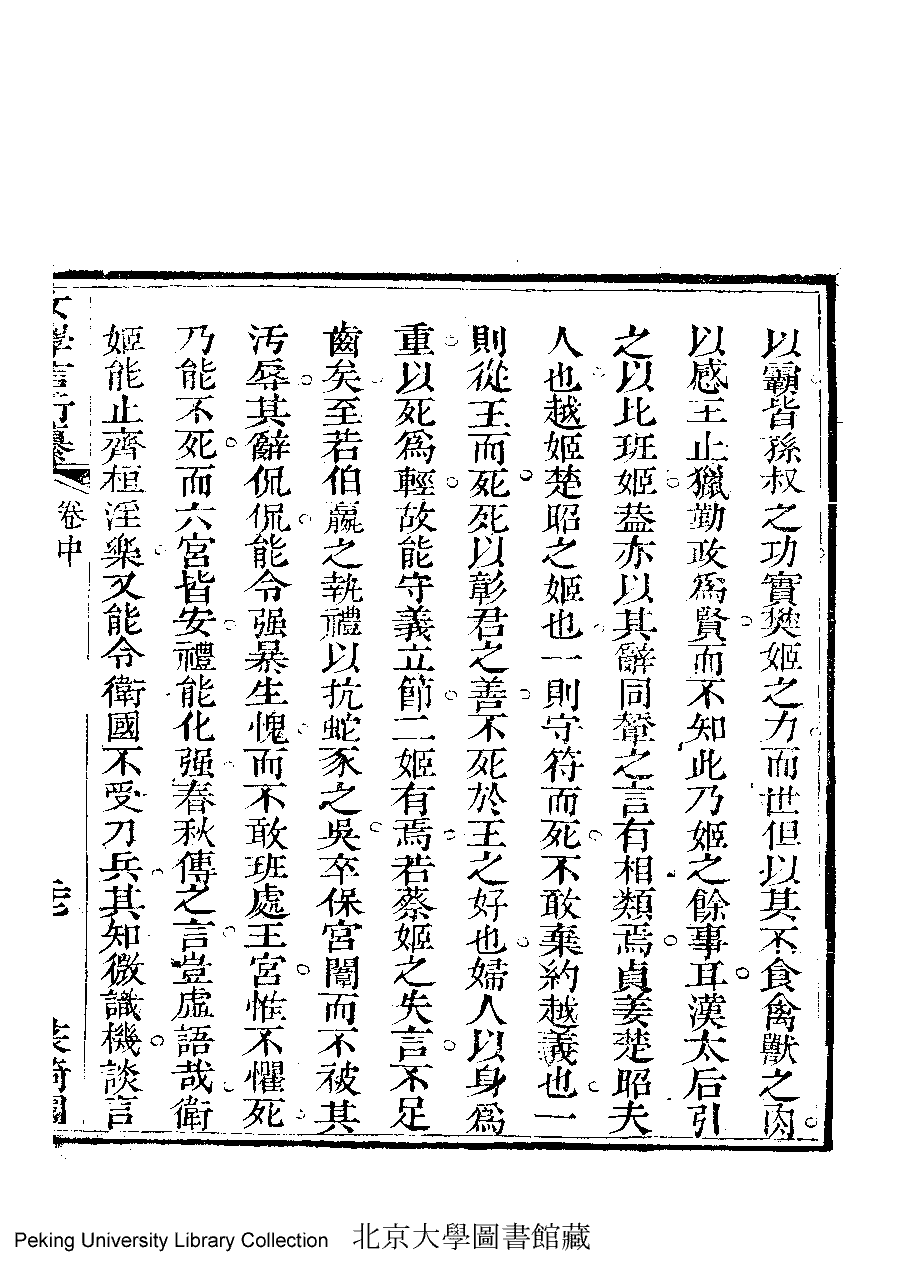 以霸皆孫叔之功實樊姬之力而世但以其不食禽獸之肉
以感王止獵勤政爲賢而不知此乃姬之餘事耳漢太后引
之以比班姬葢亦以其辭同輦之言有相類焉貞姜楚昭夫
人也越姬楚昭之姬也一則守符而死不敢棄約越義也一
則從王而死死以彰君之善不死於王之好也婦人以身爲
重以死爲輕故能守義立節二姬有焉若蔡姬之失言不足
齒矣至若伯嬴之執禮以抗蛇豕之吳卒保宮闈而不被其
汚辱其辭侃侃能令强暴生愧而不敢班處王宮惟不懼死
乃能不死而六宮皆安禮能化强春秋傳之言豈虛語哉衛
姬能止齊桓淫樂又能令衛國不受刀兵其知微識機談言
女學言行纂 卷中
Peking University Library Collection 北京大學圖書館藏